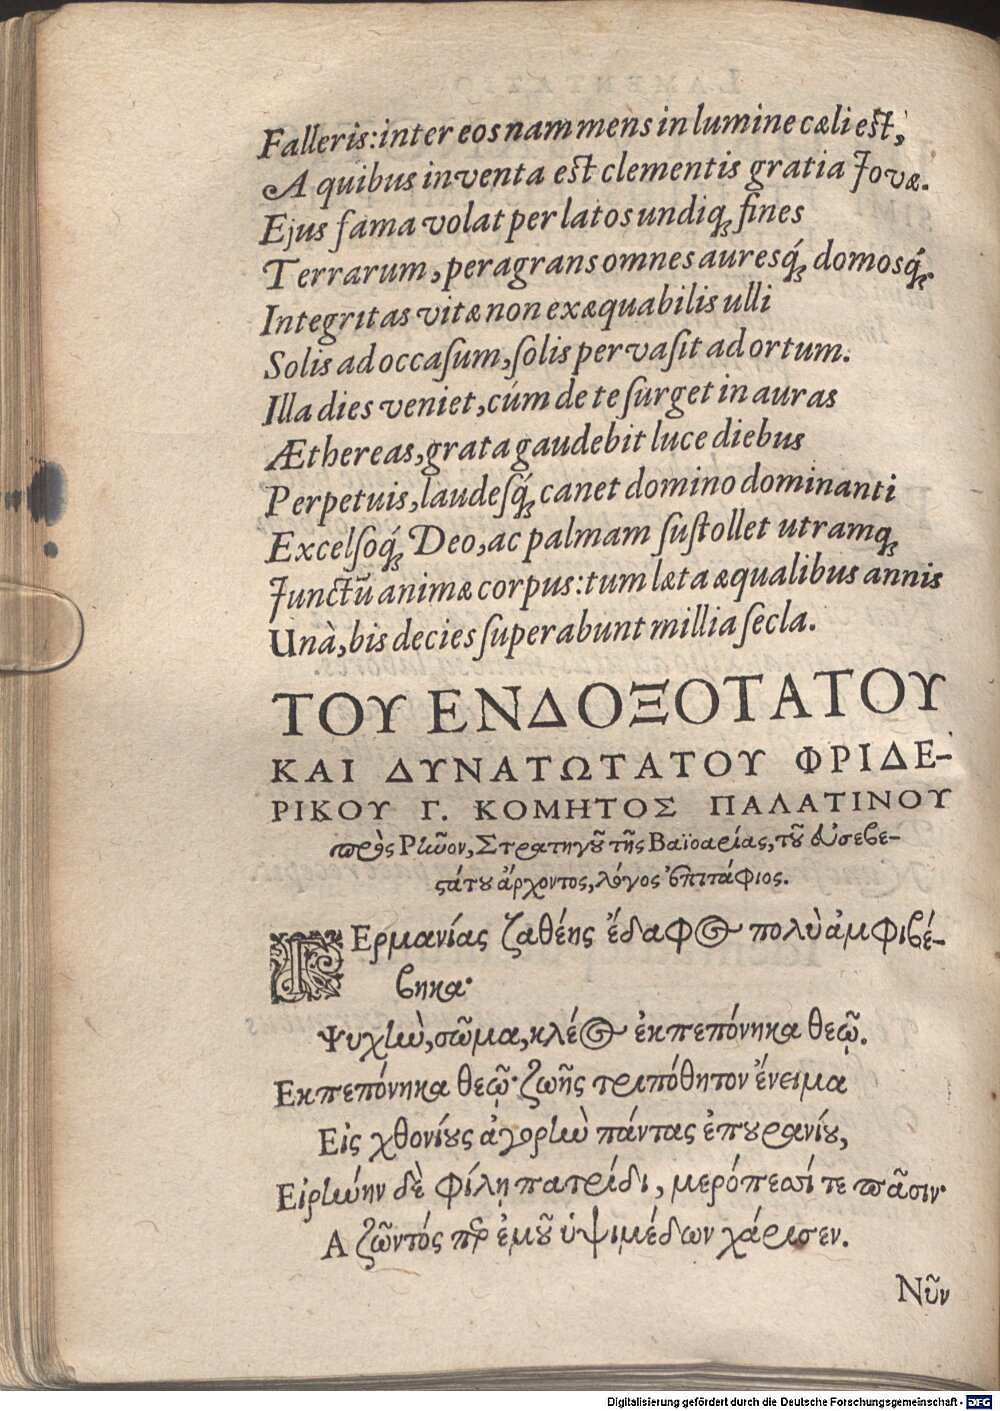 Falleris: inter eos nam mens in lumine cæli est,
A quibus inventa est clementis gratia Jovæ.
Ejus fama volat per latos undiq; fines
Terrarum, peragrans omnes auresq́; domosq́;.
Integritas vitæ non exæquabilis ulli
Solis ad occaſum, ſolis pervaſit ad ortum.
Illa dies veniet, cúm de te ſurget in auras
Æthereas, grata gaudebit luce diebus
Perpetuis, laudeſq́; canet domino dominanti
Excelſoq́; Deo, ac palmam ſuſtollet utramq;
Junctũ animæ corpus: tum læta æqualibus annis
Unà, bis decies ſuperabunt millia ſecla.
ΤΟΥ ΕΝΔΟΞΟΤΑΤΟΥ
ΚΑΙ ΔΥΝΑΤΩΤΑΤΟΥ ΦΡΙΔΕ-
ΡΙΚΟΥ Γ. ΚΟΜΗΤΟΣ ΠΑΛΑΤΙΝΟΥ
πρὸς Ρῆνον, Στρατηγοῦ τῆς Βαϊοαρίας, τοῦ εὐσεβε-
στάτου ἄρχοντος, λόγος ἐπιτάφιος.
ΓΕρμανίας ζαθέης ἔδαφος πολὺ ἀμφιβέ-
βηκα·
Ψυχὴν, σῶμα, κλέος ἐκπεπόνηκα θεῷ.
Εκπεπόνηκα θεῷ· ζωῆς τριπόθητον ἔνειμα
Εἰς χθονίους ἀγορὴν πάντας ἐπουρανίου,
Εἰρήνην δὲ φίλῃ πατρίδι, μερόπεσσί τε πᾶσιν·
Α ζῶντός περ ἐμοῦ ὑψιμέδων χάρισεν.
Νῦν
Digitalisierung gefördert durch die Deutsche Forschungsgemeinschaft - DFG